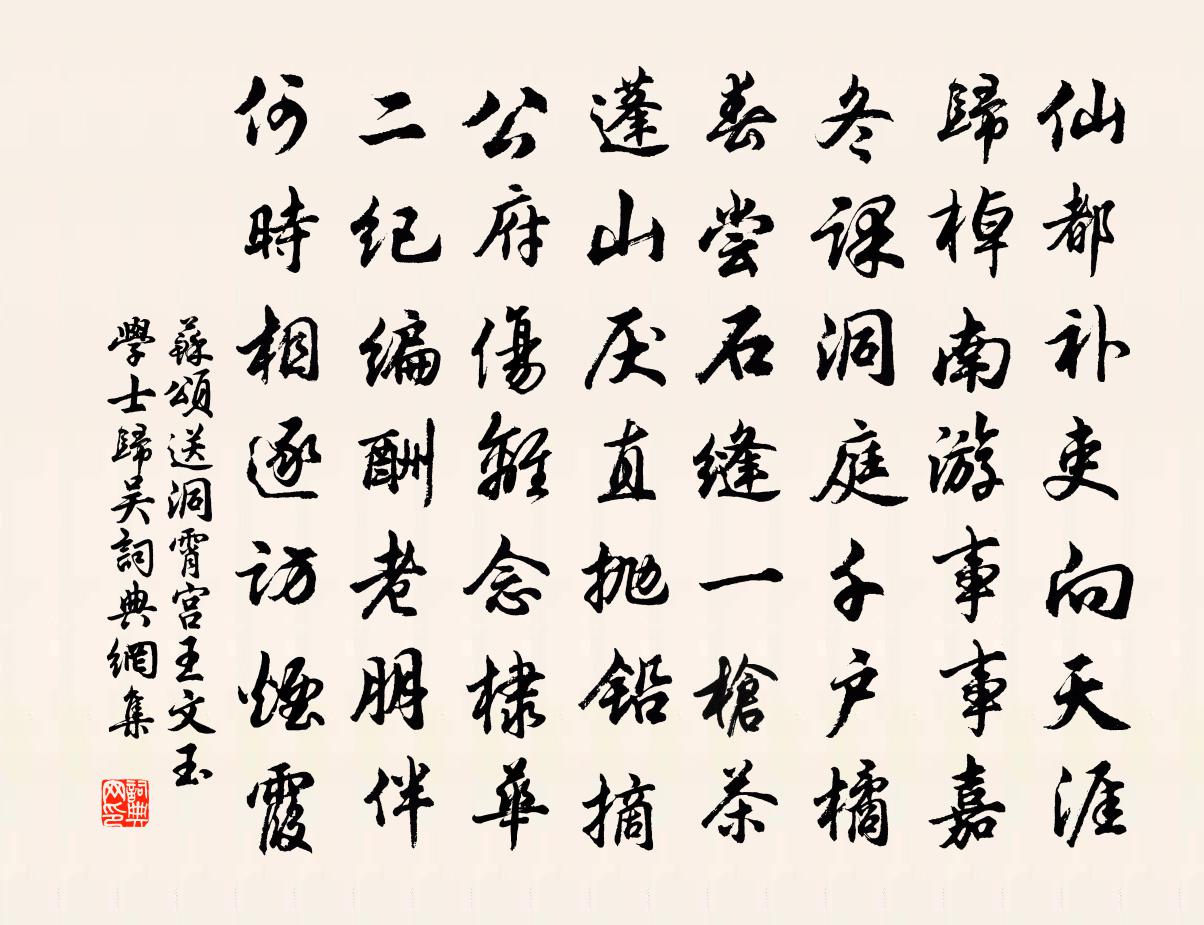 仙都补吏向天涯
歸棹南游事事嘉
冬課洞庭千户橘
春嘗石縫一槍茶
蓬山厌直抛铅摘
公府傷離念棣華
二纪编酬老朋伴
何時相逐訪煙霞
蘇頌送洞霄宫王文玉
學士歸吴詞典網集
詞典
网印